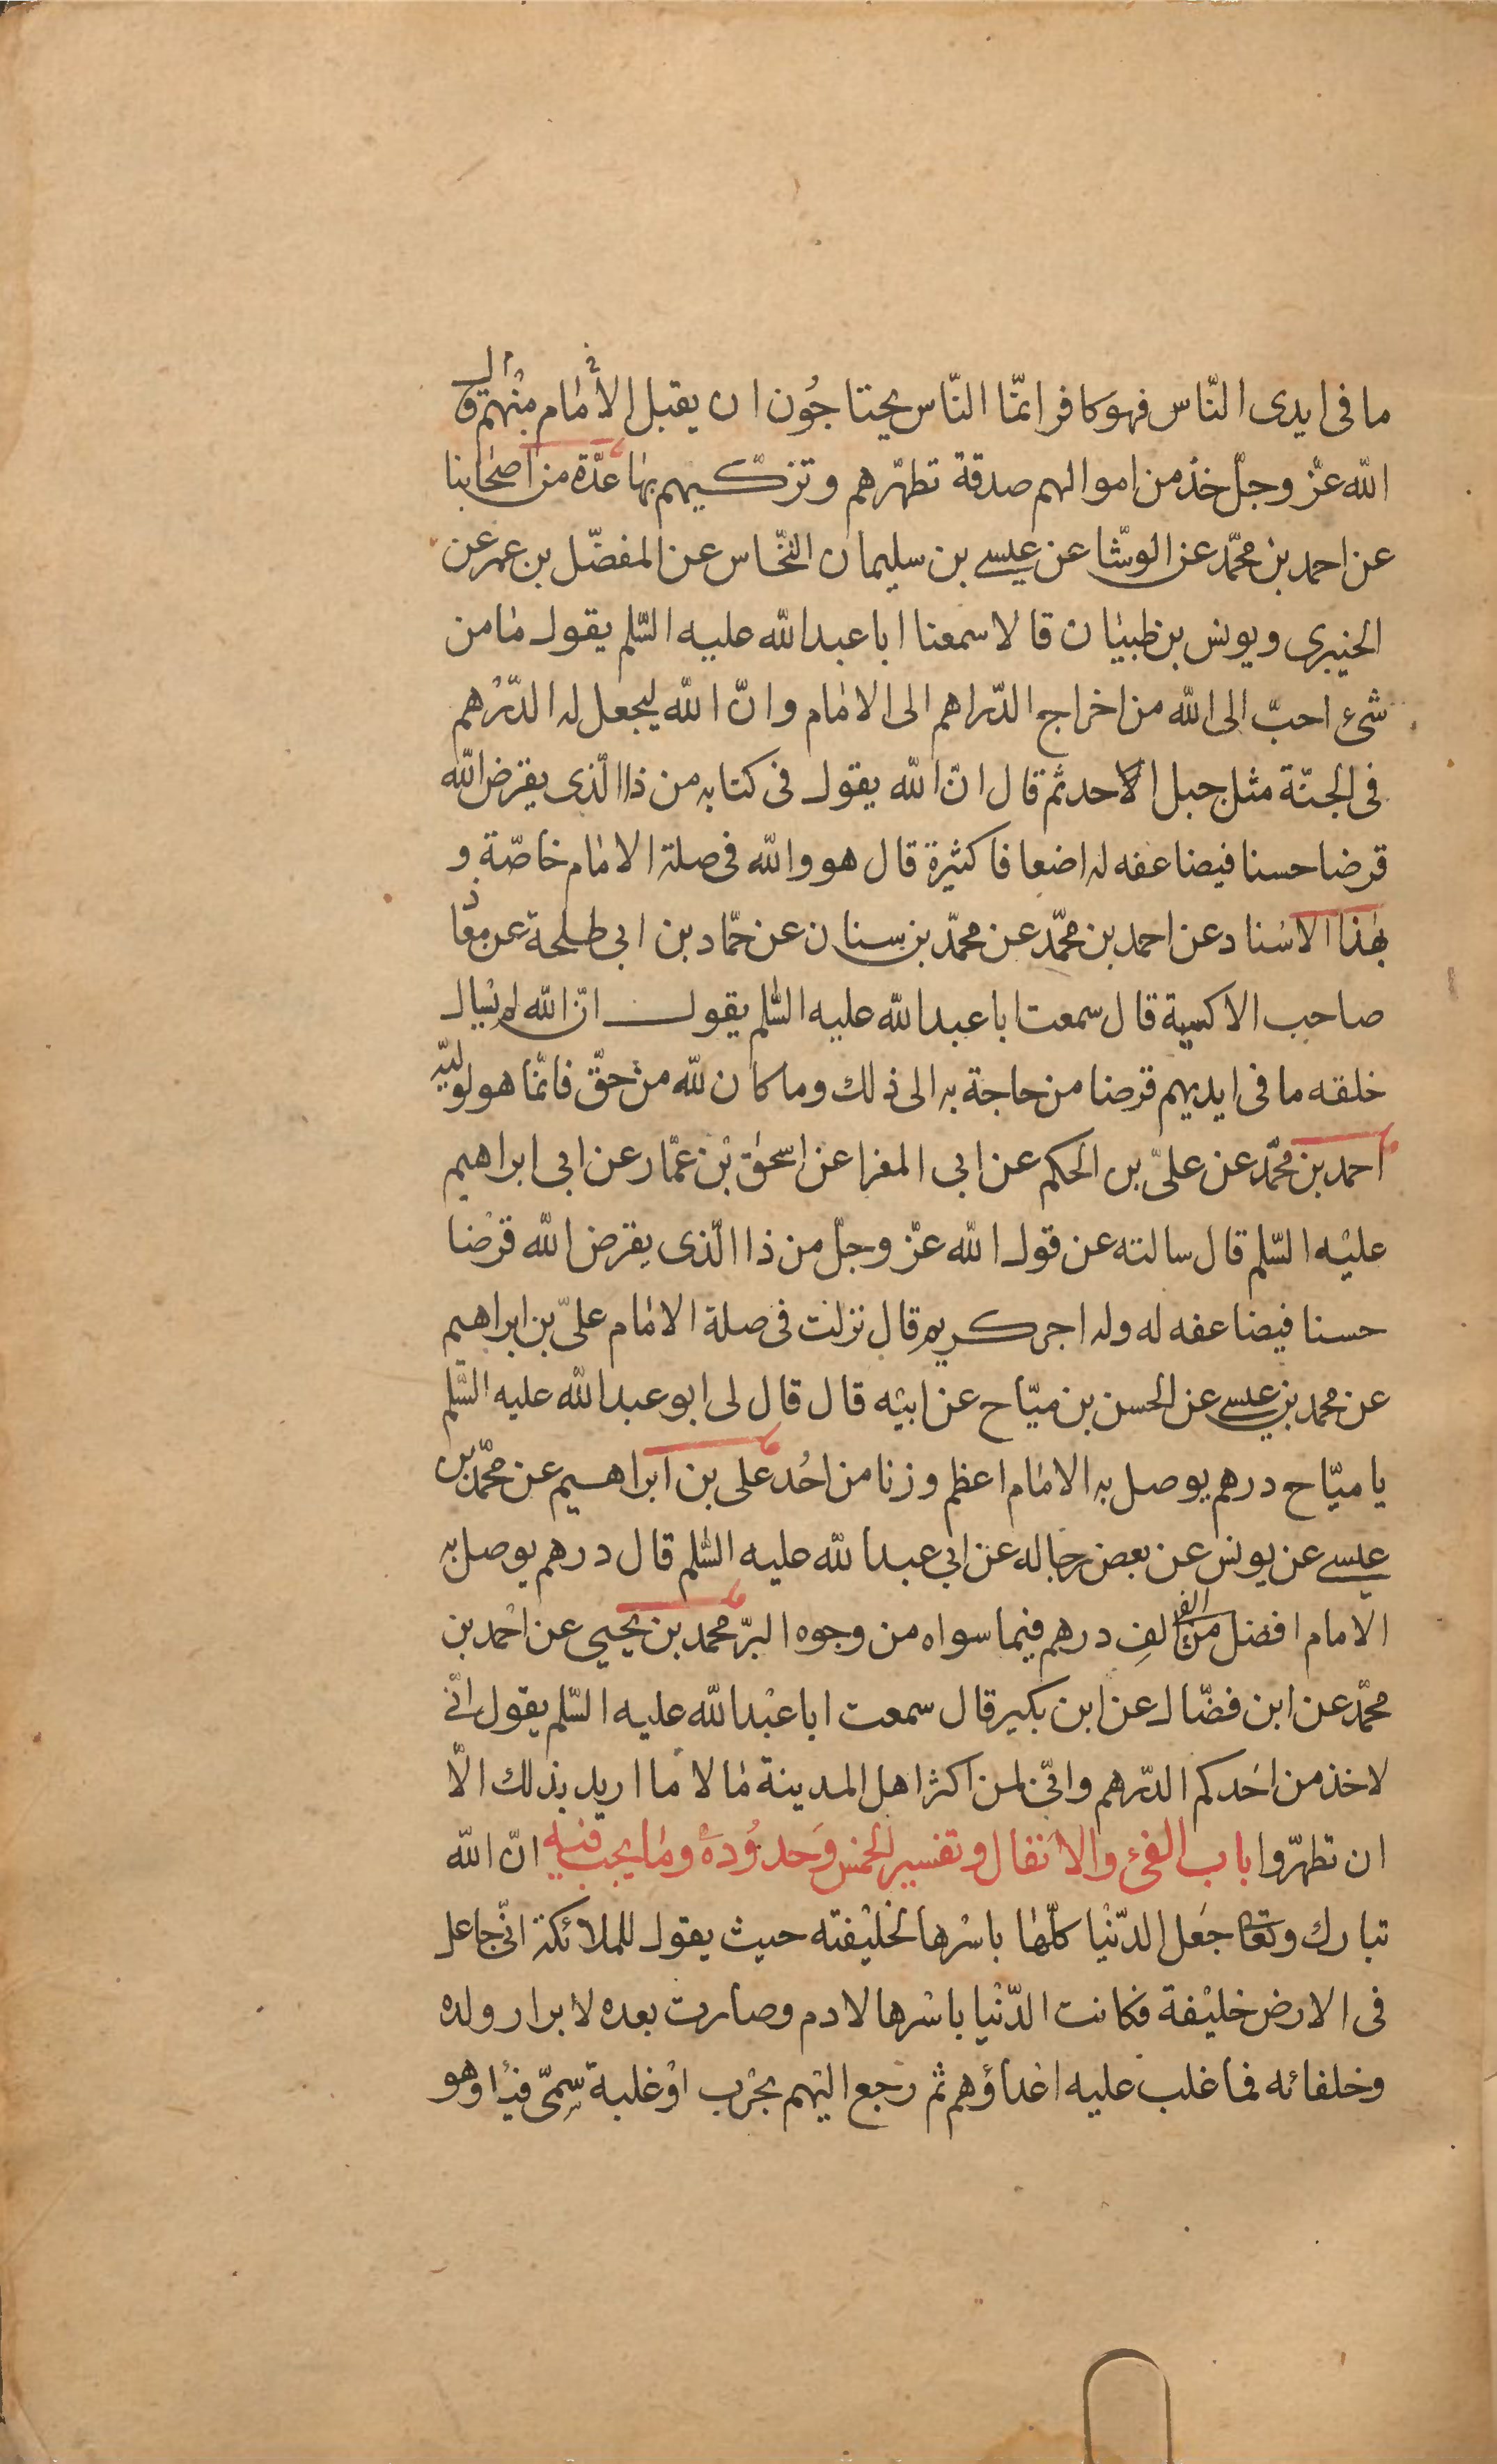 ما فى ايدى النّاس فهو كافر انّما النّاس يحتاجُون ان يقبل الأمام منْهم قال
الله عزّ وجلّ خذ من اموالهم صدقة تطهّرهم وتزكّيهم بها عدّة من اصحابنا
عن احمد بن محمّد عن الوشّا عن عيسى بن سليمان النّخاس عن المفضّل بن عمر عن
الخيبرى ويونس بن ظبيان قالا سمعنا ابا عبد الله عليه السّلم يقول ما من
شىء احبّ الى الله من اخراج الدّراهم الى الامام وانّ الله ليجعل له الدّرْهم
فى الجنّة مثل جبل الاحد ثم قال انّ الله يقول فى كتابه من ذا الّذى يقرض الله
قرضا حسنا فيضاعفه له اضعافا كثيرة قال هو والله فى صلة الامام خاصّة و
بهذا الاسناد عن احمد بن محمّد عن محمّد بن سنان عن حمّاد بن ابى طلحة عن معاذ
صاحب الاكسية قال سمعت ابا عبد الله عليه السّلم يقول انّ الله لم يسال
خلقه ما فى ايديهم قرضا من حاجة به الى ذلك وما كان لله من حقّ فانّما هو لوليّه
احمد بن محمّد عن علىّ بن الحكم عن ابى المغرا عن اسحق بْن عمّار عن ابى ابراهيم
عليْه السّلم قال سالته عن قول الله عزّ وجلّ من ذا الّذى يقرض الله قرْضا
حسنا فيضاعفه له وله اجر كريم قال نزلت فى صلة الامام علىّ بن ابراهيم
عن محمد بن عيسى عن الحسن بن ميّاح عن ابيْه قال قال لى ابو عبد الله عليه السّلم
يا ميّاح درهم يوصل به الامام اعظم وزنا من احُد على بن ابراهيم عن محمّد بن
عيسى عن يونس عن بعض رجاله عن ابى عبد الله عليه السّلم قال درهم يوصل به
الامام افضل من الفى الفِ درهم فيما سواه من وجوه البرّ محمد بن يحيى عن احْمد بن
محمّد عن ابن فضّال عن ابن بكير قال سمعت ابا عبْد الله عليه السّلم يقول انّى
لاخذ من احَدكم الدّرهم وانّى لمن اكثر اهل المدينة مالا ما اريد بذلك الّا
ان تطهّروا باب الفىء والانفال وتفسير الخمس وَحدوُدهُ وما يجب فيه انّ الله
تبارك وتعا جَعل الدّنْيا كلّها باسْرها لخليْفته حيث يقول للملائكة انّى جاعل
فى الارض خليْفة فكانت الدّنْيا باسْرها لادم وصارت بعده لابرار ولده
وخلفائه فما غلب عليه اعْداؤهم ثم رجع اليْهم بحرْب اوْ غلبة سمّى فيْئا وهو